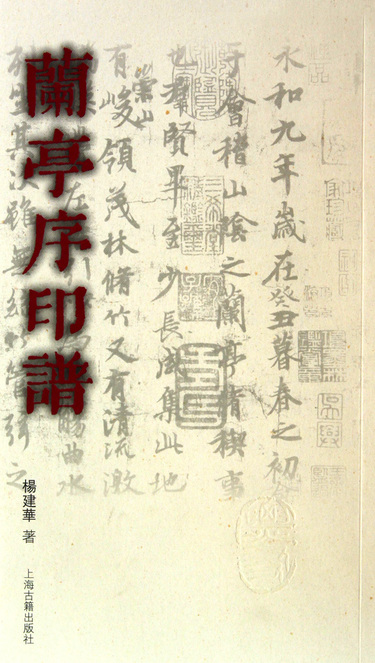 蘭亭序印譜
楊建華 著
上海古籍出版社
永和九年歲在癸丑暮春之初會
于會稽山陰之蘭亭脩稧事
也群賢畢至少長咸集此地
有崇山峻領茂林脩竹又有清流激
左 觴曲水
列坐其次雖無絲竹管弦之